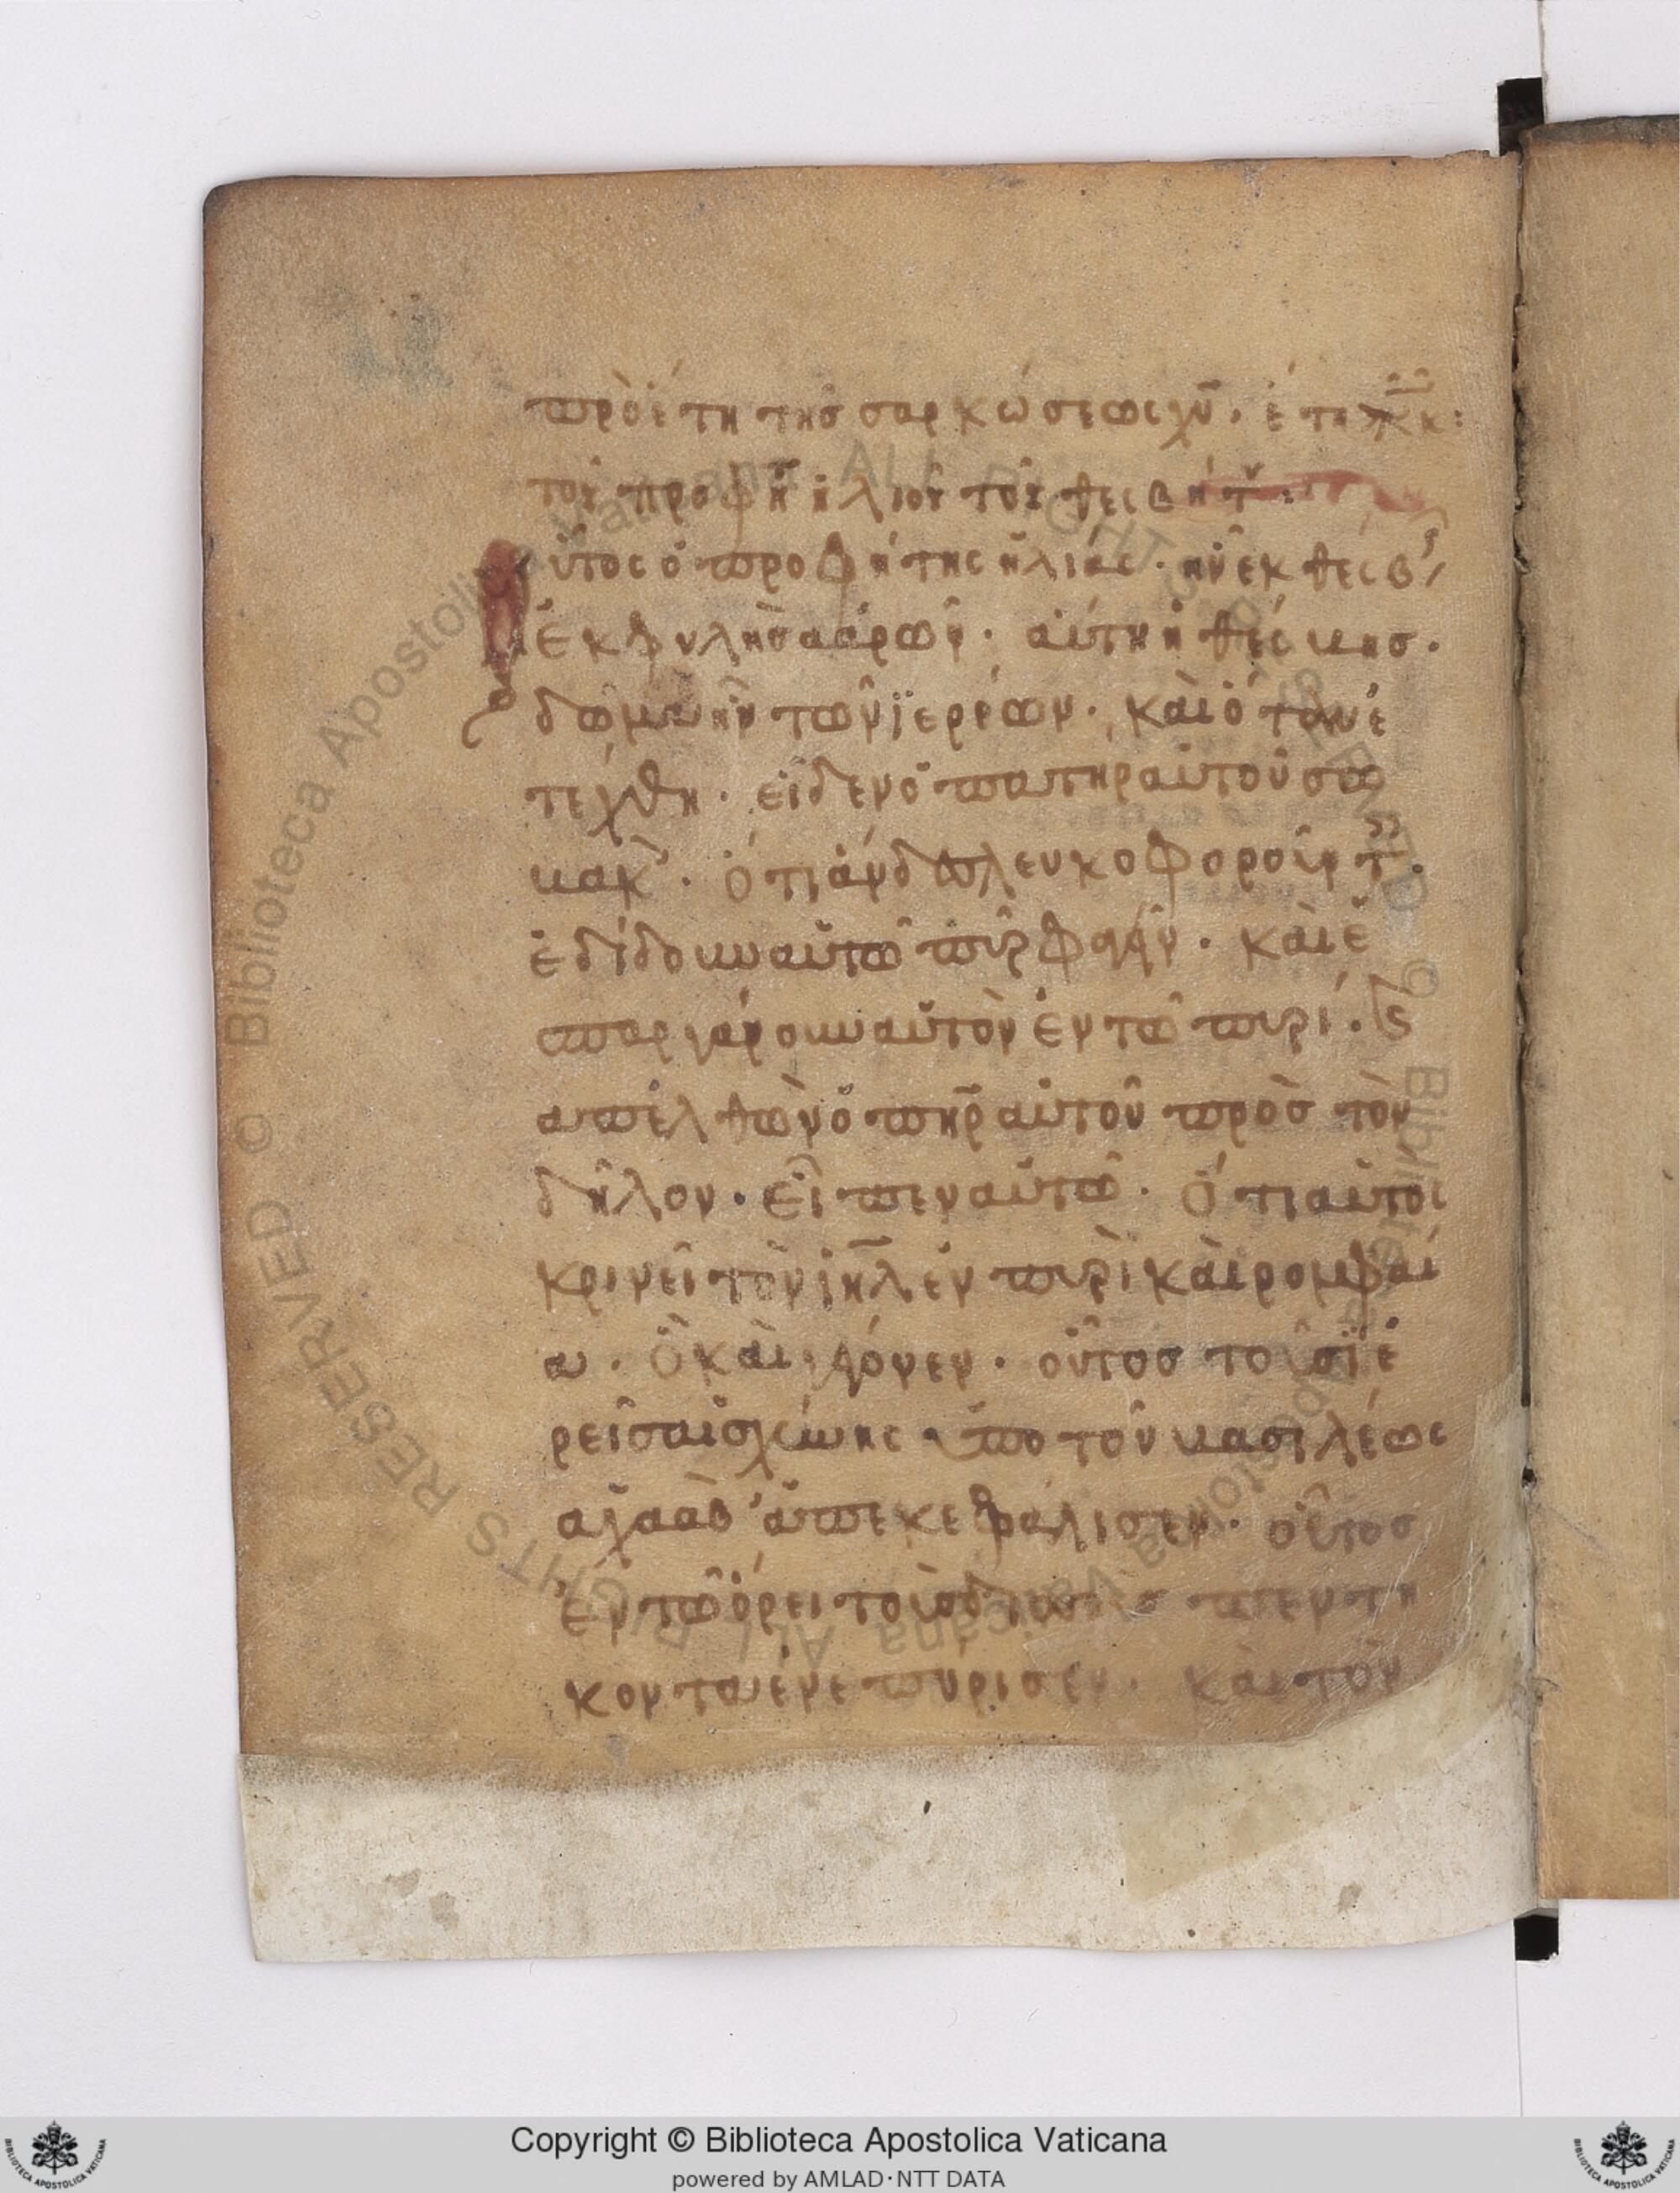 πρὸ ἔτη τῆς σαρκώσεως χῦ. ἔτη
τοῦ προφη ἠλιοῦ τοῦ θεσβήτ :
οὗτος ὁ προφήτης ἠλίας. ἦν ἐκ θεσβ
ἐκ φυλῆς ἀαρῶν. αὕτη ἡ θέσβης.
δῶμα ἦν τῶν ἱερέων. καὶ ὅταν ἐ
τέχθη. εἶδεν ὁ πατὴρ αὐτοῦ σο
βακ. ὅτι ἄνδρες λευκοφοροῦντ.
ἐδίδουν αὐτῶ πῦρ φαγῆν. καὶ ἐ
σπαργάνουν αὐτὸν ἐν τῶ πυρί. καὶ
ἀπελθὼν ὁ πηρ αὐτοῦ πρὸς τὸν
δῆλον. εἶπεν αὐτῶ. ὅτι αὐτοι
κρινεῖ τὸν ἰηλ ἐν πυρὶ καὶ ρομφαί
α. ὃ καὶ γέγονεν. οὗτος τοὺς ἱε
ρεῖς αἰσχύνης ὑπο τοῦ βασιλέως
ἀχαὰβ ἀπεκεφάλισεν. οὗτος
ἐν τῶ ὄρει τοὺς δὶς πεντη
κονταἐνεπύρισεν. καὶ τὸν
Copyright © Biblioteca Apostolica Vaticana
powered by AMLAD·NTT DATA